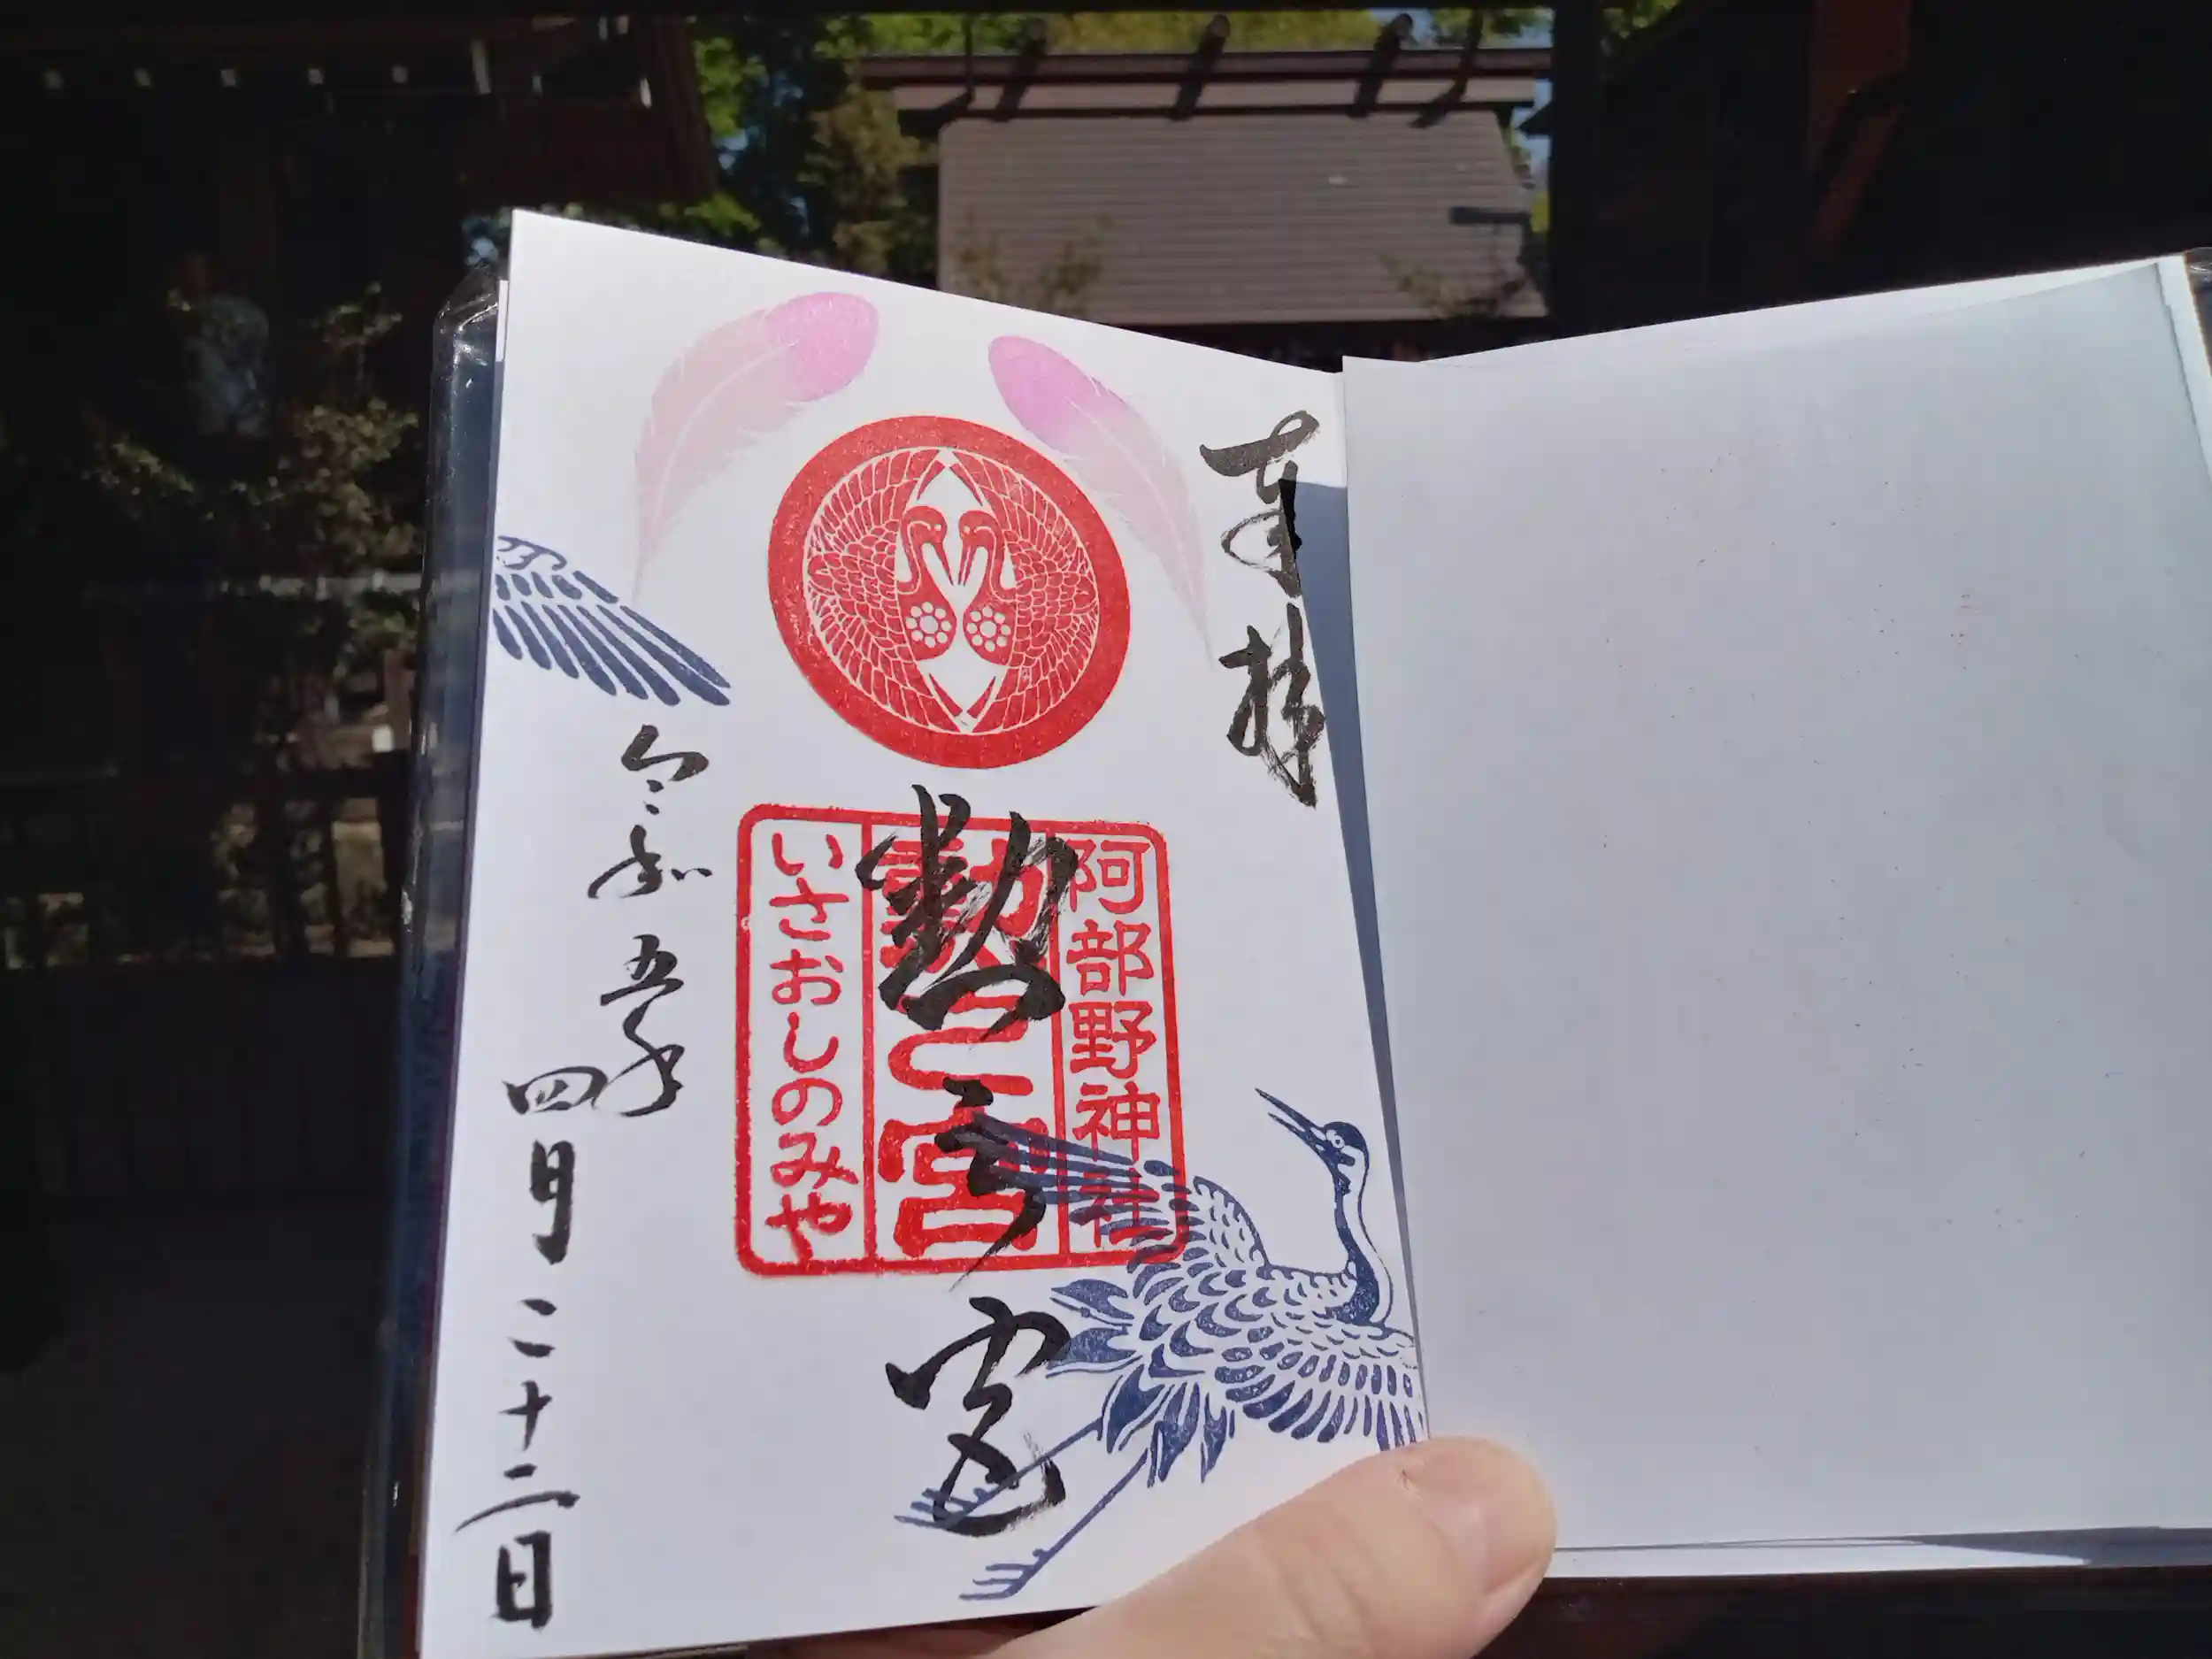 奉拝
阿部野神社
勲之宮
勲之宮
いさおしのみや
令和五年
四月二十二日